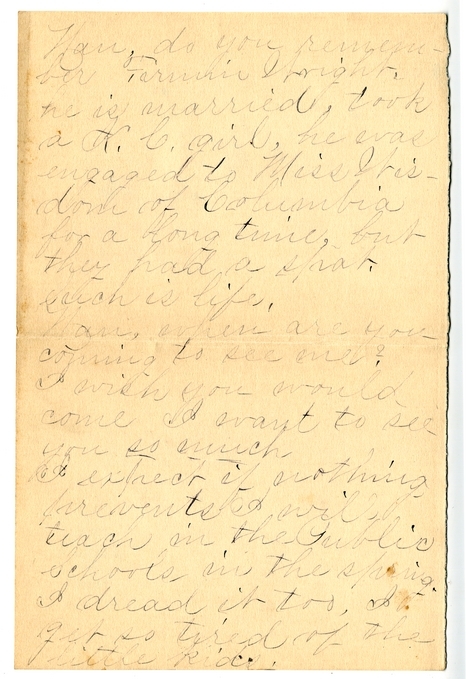 Nan, do you remem-
ber Fermin Wright.
he is married, took
a K. C. girl, he was
engaged to Miss Wis-
dom of Columbia
for a long time, but
they had a spat.
such is life.
Nan, when are you
coming to see me?
I wish you would
come I want to see
you so much
I expect if nothing
prevents I will
teach in the Public
schools in the spring.
I dread it too, I
get so tired of the
little kids.